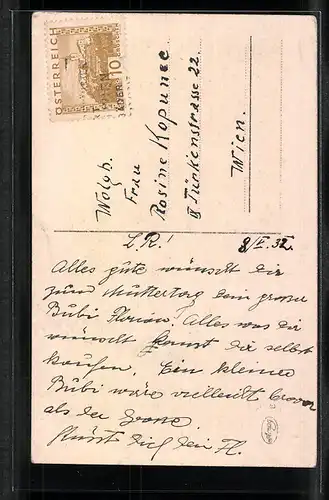 ÖSTERREICH
10
WIEN
Wolgb.
Frau
Rosine Kopunec
II Türkenstrasse 22.
Wien.
L. R.! 8/V. 32.
Alles gute wünscht dir
zum Muttertag dein grosser
Bubi Florian! Alles was dir
wünscht kannst dir selbst
kaufen. Ein kleiner
Bubi wäre vielleicht braver
als der grosse.
Grüsst dich dein Fl.